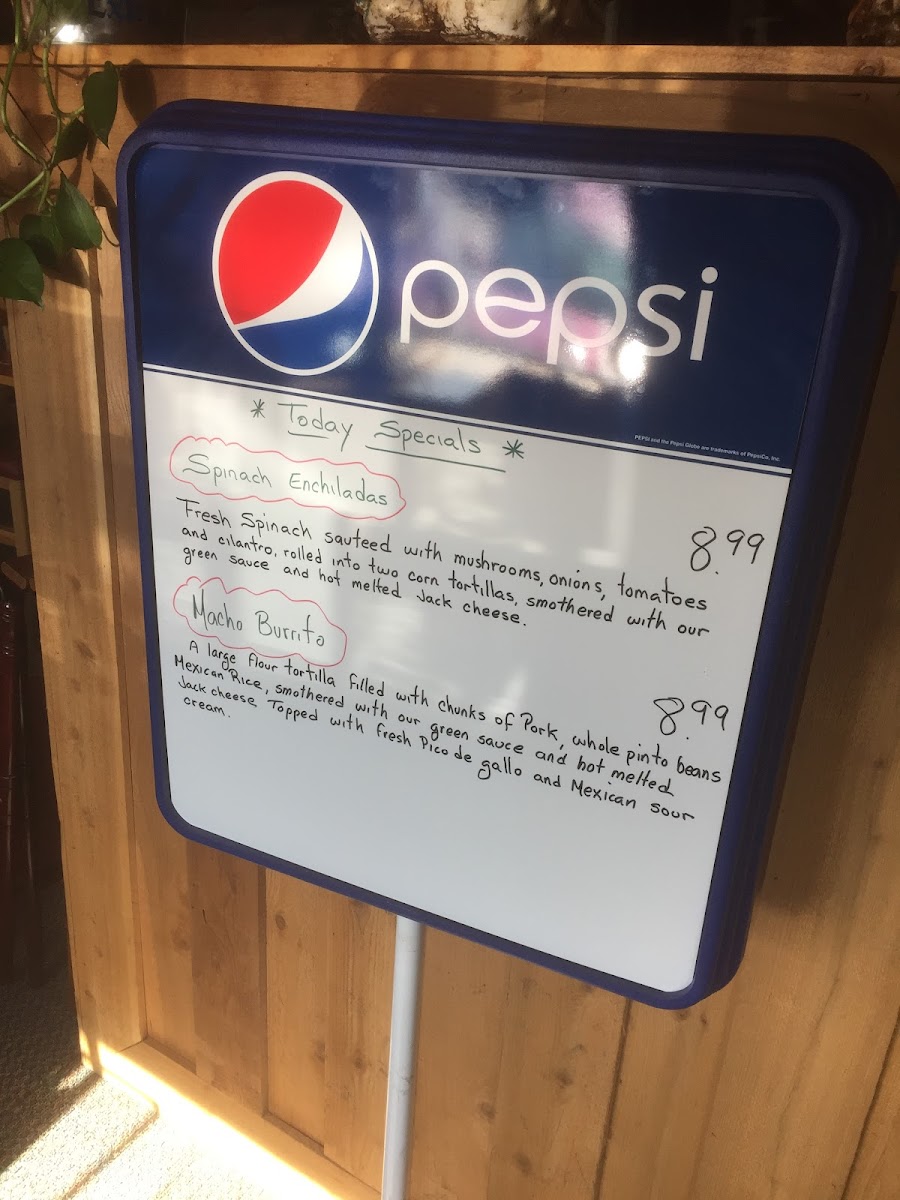 pepsi
PEPSI and the Pepsi Globe are trademarks of PepsiCo, Inc.
* Today Specials *
Spinach Enchiladas
8.99
Fresh Spinach sauteed with mushrooms, onions, tomatoes
and cilantro, rolled into two corn tortillas, smothered with our
green sauce and hot melted Jack cheese.
Macho Burrito
8.99
A large flour tortilla filled with chunks of Pork, whole pinto beans
Mexican Rice, smothered with our green sauce and hot melted
Jack cheese. Topped with fresh Pico de gallo and Mexican sour
cream.